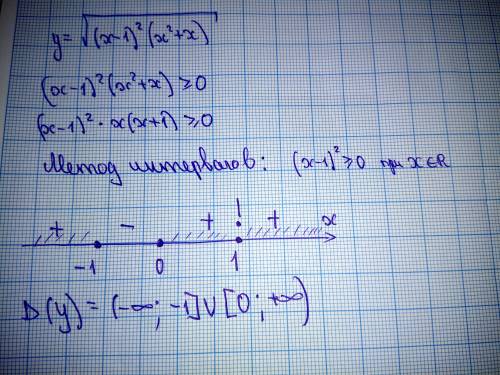 y = √((x-1)²(x²+x))
(x-1)²(x²+x) ≥ 0
(x-1)² · x(x+1) ≥ 0
Метод интервалов: (x-1)² ≥ 0 при x∈R
+ - + ! + x
-1 0 1
D(y) = (-∞; -1] ∪ [0; +∞)